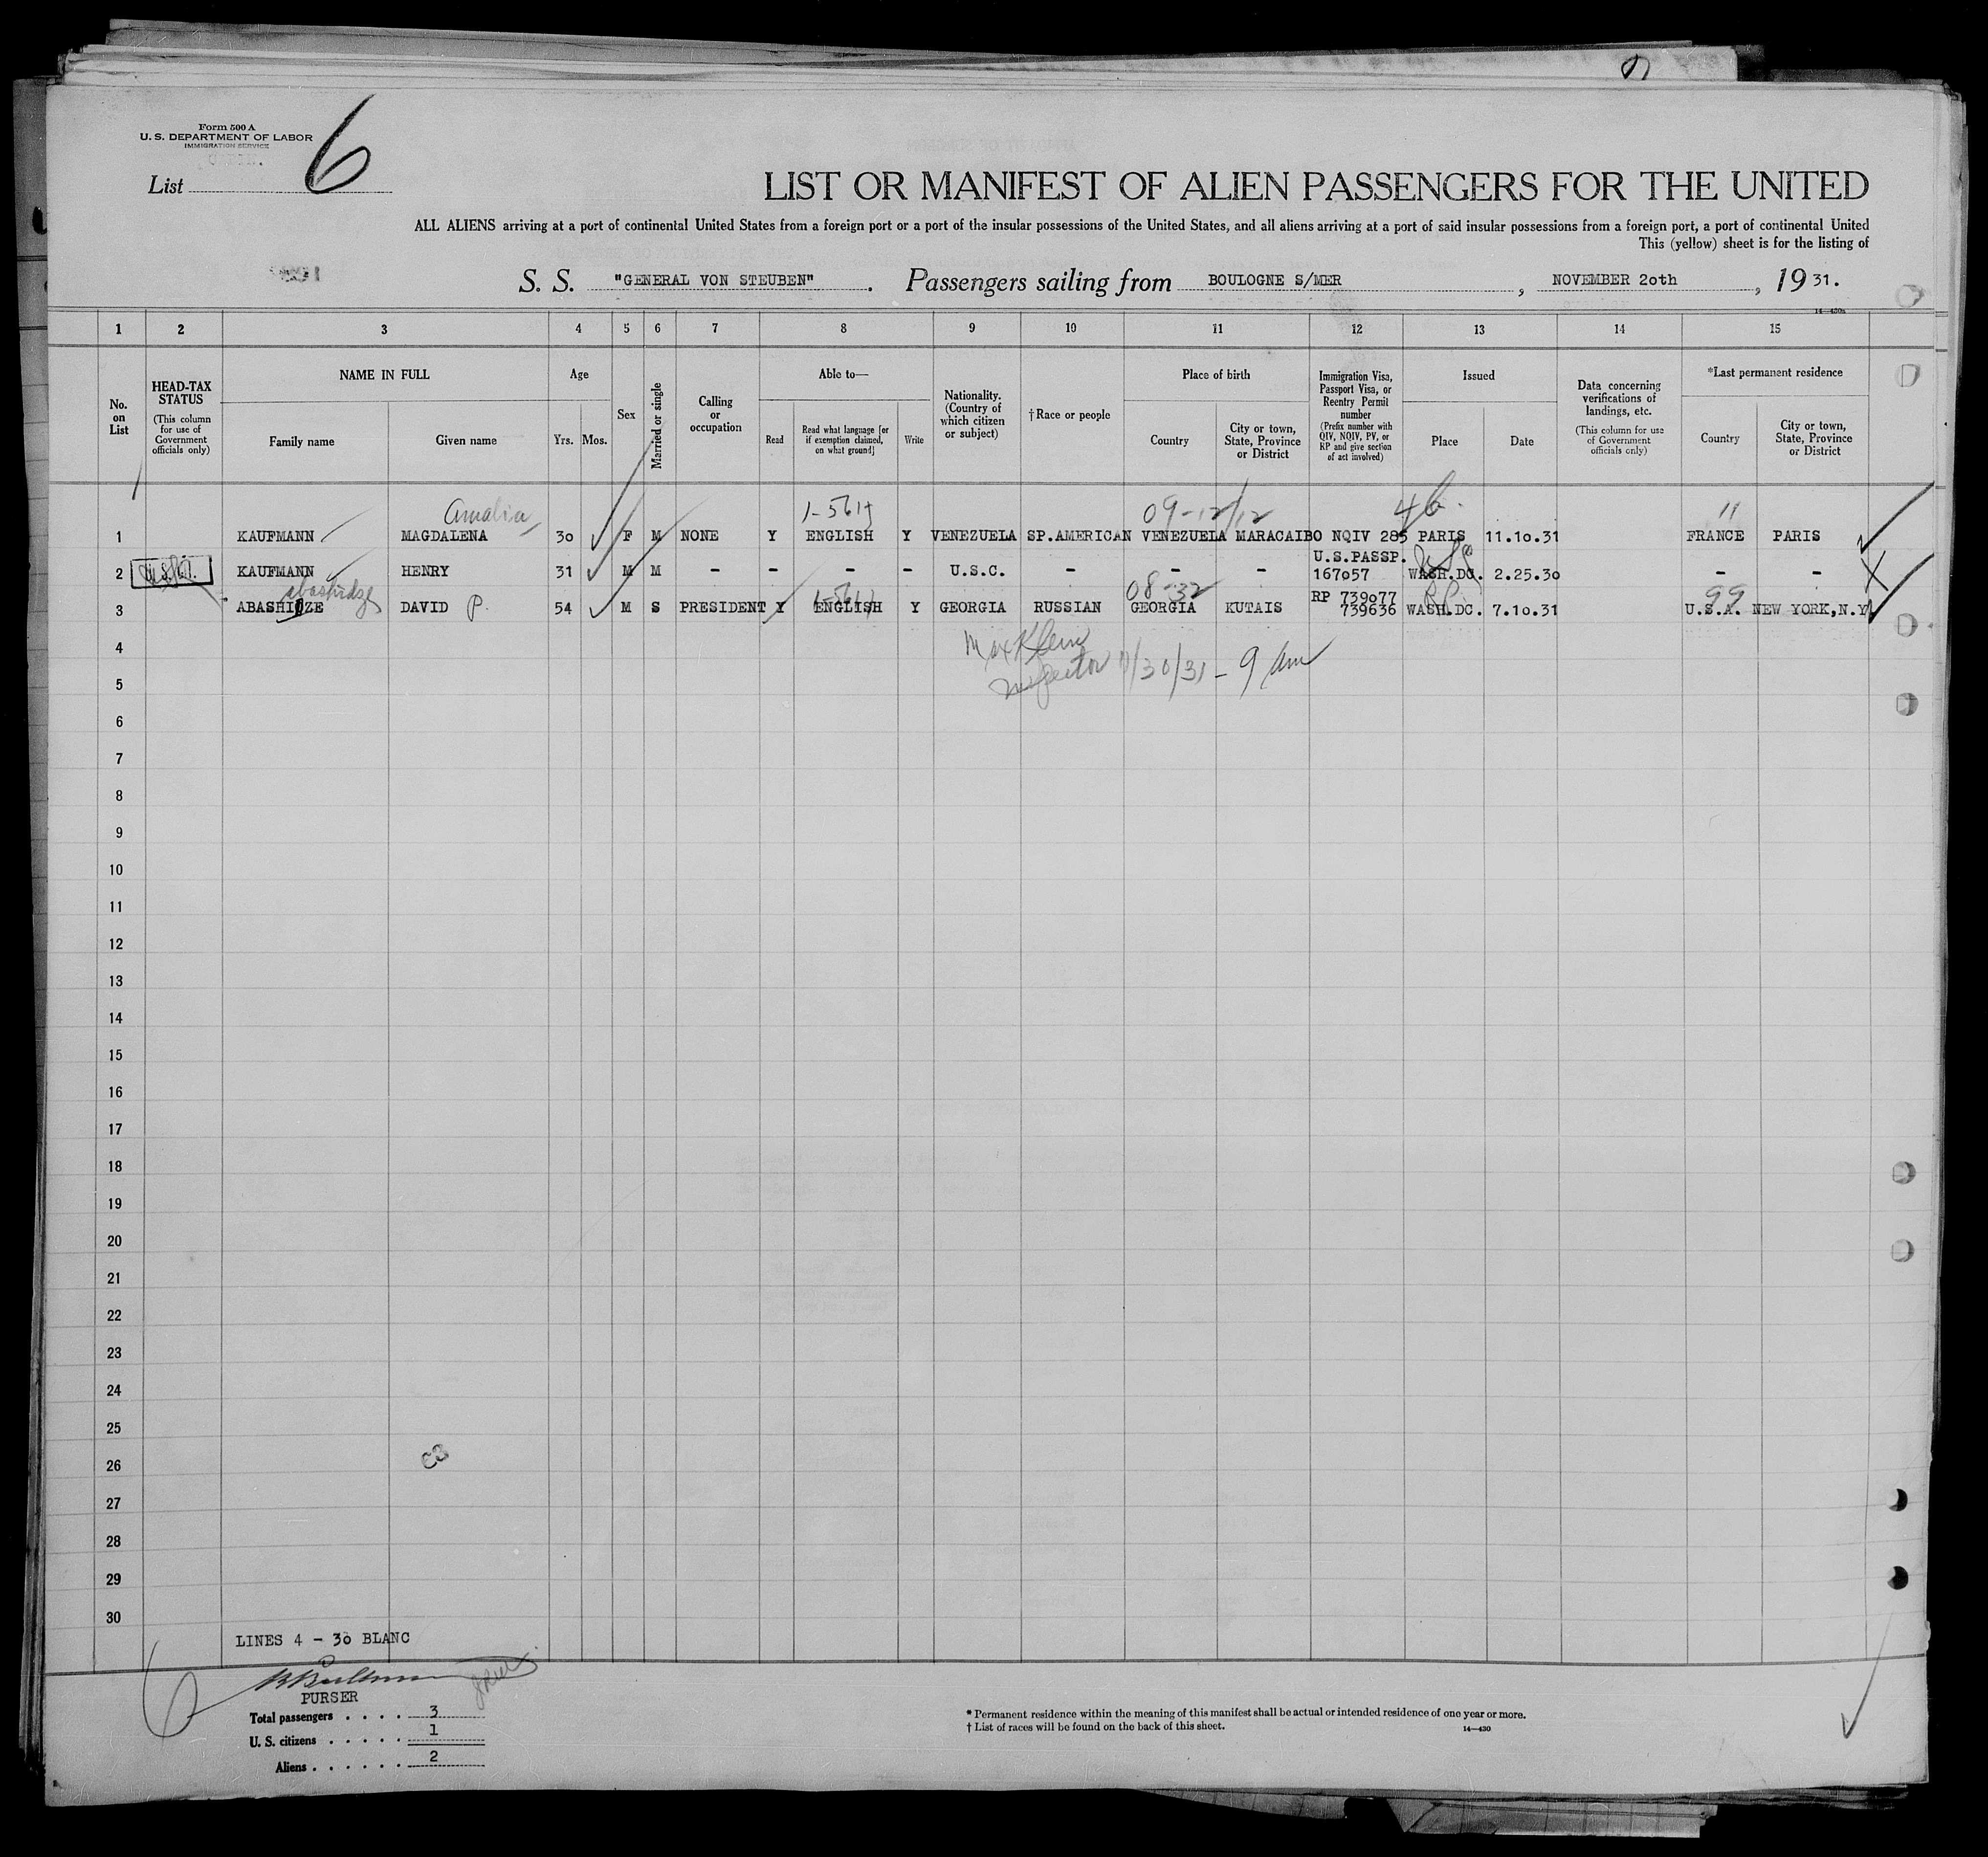 Form 500 A
U. S. DEPARTMENT OF LABOR
IMMIGRATION SERVICE
List 6
LIST OR MANIFEST OF ALIEN PASSENGERS FOR THE UNITED
ALL ALIENS arriving at a port of continental United States from a foreign port or a port of the insular possessions of the United States, and all aliens arriving at a port of said insular possessions from a foreign port, a port of continental United
This (yellow) sheet is for the listing of
S. S. "GENERAL VON STEUBEN". Passengers sailing from BOULOGNE S/MER, NOVEMBER 2oth, 19 31.
1 2 3 4 5 6 7 8 9 10 11 12 13 14 15
No. on List
HEAD-TAX STATUS
(This column for use of Government officials only)
NAME IN FULL
Family name
Given name
Age
Yrs. Mos.
Sex
Married or single
Calling or occupation
Able to—
Read
Read what language [or if exemption claimed, on what ground]
Write
Nationality. (Country of which citizen or subject)
†Race or people
Place of birth
Country
City or town, State, Province or District
Immigration Visa, Passport Visa, or Reentry Permit number
(Prefix number with QIV, NQIV, PV, or RP and give section of act involved)
Issued
Place
Date
Data concerning verifications of landings, etc.
(This column for use of Government officials only)
*Last permanent residence
Country
City or town, State, Province or District
Amalia 09-12/12 11
1 KAUFMANN MAGDALENA 30 F M NONE Y ENGLISH Y VENEZUELA SP.AMERICAN VENEZUELA MARACAIBO NQIV 285 PARIS 11.10.31 FRANCE PARIS
U.S.PASSP.
2 KAUFMANN HENRY 31 M M - - - - U.S.C. - - - 167057 WASH.DC. 2.25.30 - -
Abashidze 08-32 RP 739077 RP. 99
3 ABASHIDZE DAVID P. 54 M S PRESIDENT Y ENGLISH Y GEORGIA RUSSIAN GEORGIA KUTAIS 739636 WASH.DC. 7.10.31 U.S.A. NEW YORK,N.Y.
4 Max Klein
5 Inspector 11/30/31 - 9 am
6
7
8
9
10
11
12
13
14
15
16
17
18
19
20
21
22
23
24
25
26
27
28
29
30
LINES 4 - 30 BLANC
PURSER
Total passengers . . . . 3
U. S. citizens . . . . . 1
Aliens . . . . . . 2
* Permanent residence within the meaning of this manifest shall be actual or intended residence of one year or more.
† List of races will be found on the back of this sheet.
14—430